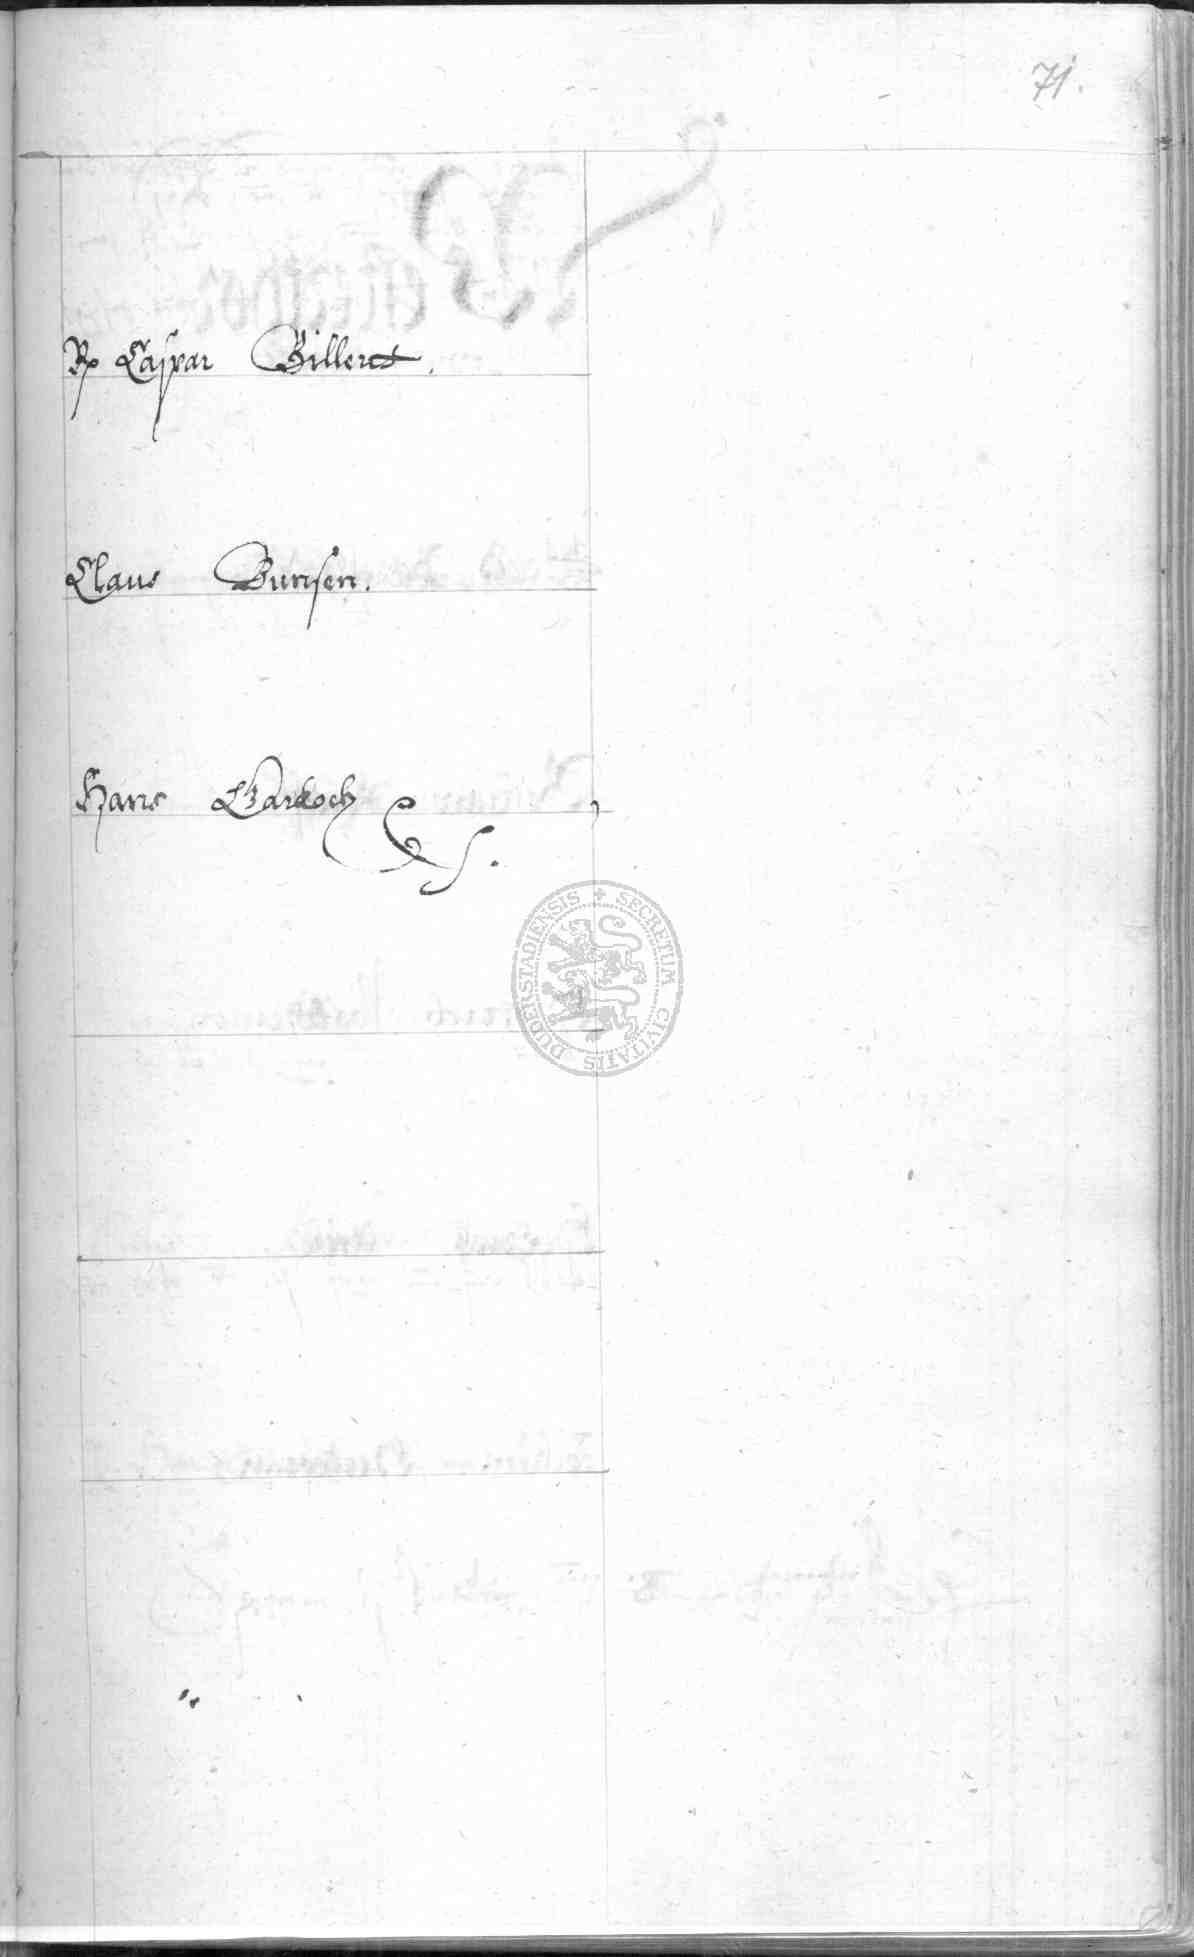 71.
Rp Caspar Billert.
Claus Bunsen.
Hans Garkoch
SECRETUM CIVITATIS DUDERSTADIENSIS